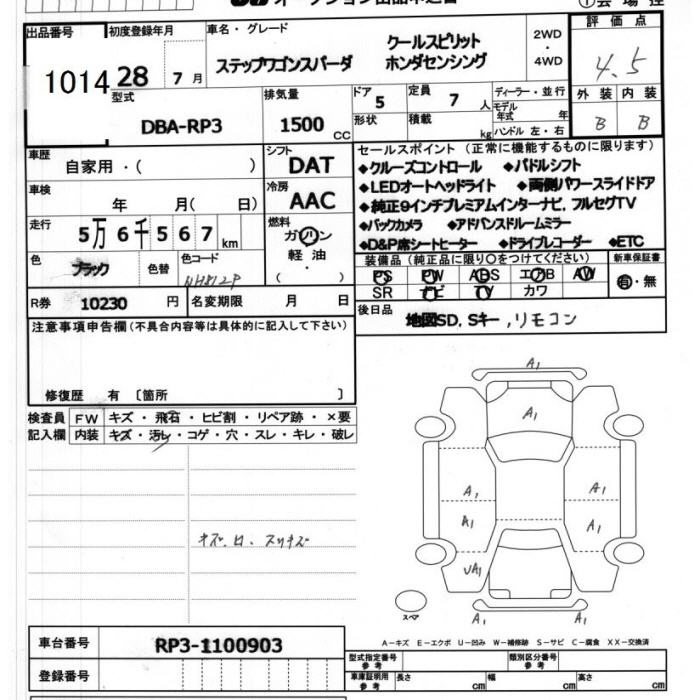 オークション出品申込書
①会場控
出品番号
1014
初度登録年月
28 7月
車名・グレード
ステップワゴンスパーダ クールスピリット ホンダセンシング
2WD・4WD
評価点
4.5
外装 内装
B B
型式
DBA-RP3
排気量
1500 CC
ドア 5
形状
定員 7 人
積載 kg
ディーラー・並行
モデル年式 年
ハンドル 左・右
車歴
自家用・( )
シフト
DAT
車検
年 月( 日)
冷房
AAC
走行
5万6千567km
燃料
ガソリン
軽油
( )
色
ブラック
色替
色コード
R券 10230 円
名変期限 月 日
セールスポイント(正常に機能するものに限ります)
◆クルーズコントロール ◆パドルシフト
◆LEDオートヘッドライト ◆両側パワースライドドア
◆純正9インチプレミアムインターナビ,フルセグTV
◆バックカメラ ◆アドバンスドルームミラー
◆D&P席シートヒーター ◆ドライブレコーダー ◆ETC
装備品(純正品に限り○をつけてください)
PS PW ABS エアB AW
SR ナビ TV カワ
新車保証書
有・無
後日品
地図SD,Sキー,リモコン
注意事項申告欄(不具合内容等は具体的に記入して下さい)
修復歴 有〔箇所 〕
検査員記入欄
FW キズ・飛石・ヒビ割・リペア跡・×要
内装 キズ・汚レ・コゲ・穴・スレ・キレ・破レ
A1
A1
A1
A1
A1
A1
UA1
A1
A1
スペア
A-キズ E-エクボ U-凹み W-補修跡 S-サビ C-腐食 XX-交換済
車台番号
RP3-1100903
登録番号
型式指定番号 参考
類別区分番号 参考
車庫証明用 参考
長さ cm
幅 cm
高さ cm